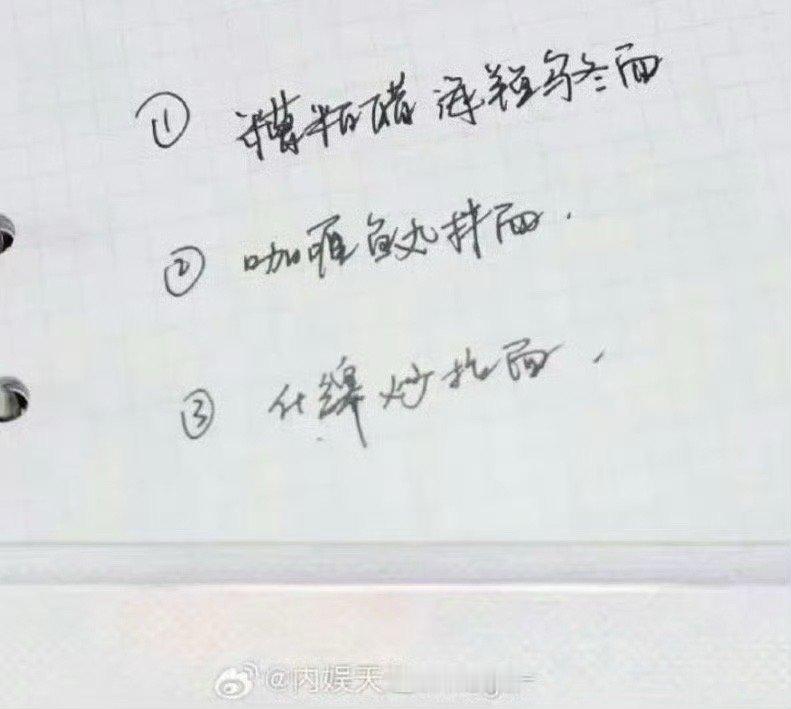 ① 糟粕醋海鲜乌冬面
② 咖喱鱼丸拌面.
③ 什锦炒拉面.
@内娱天